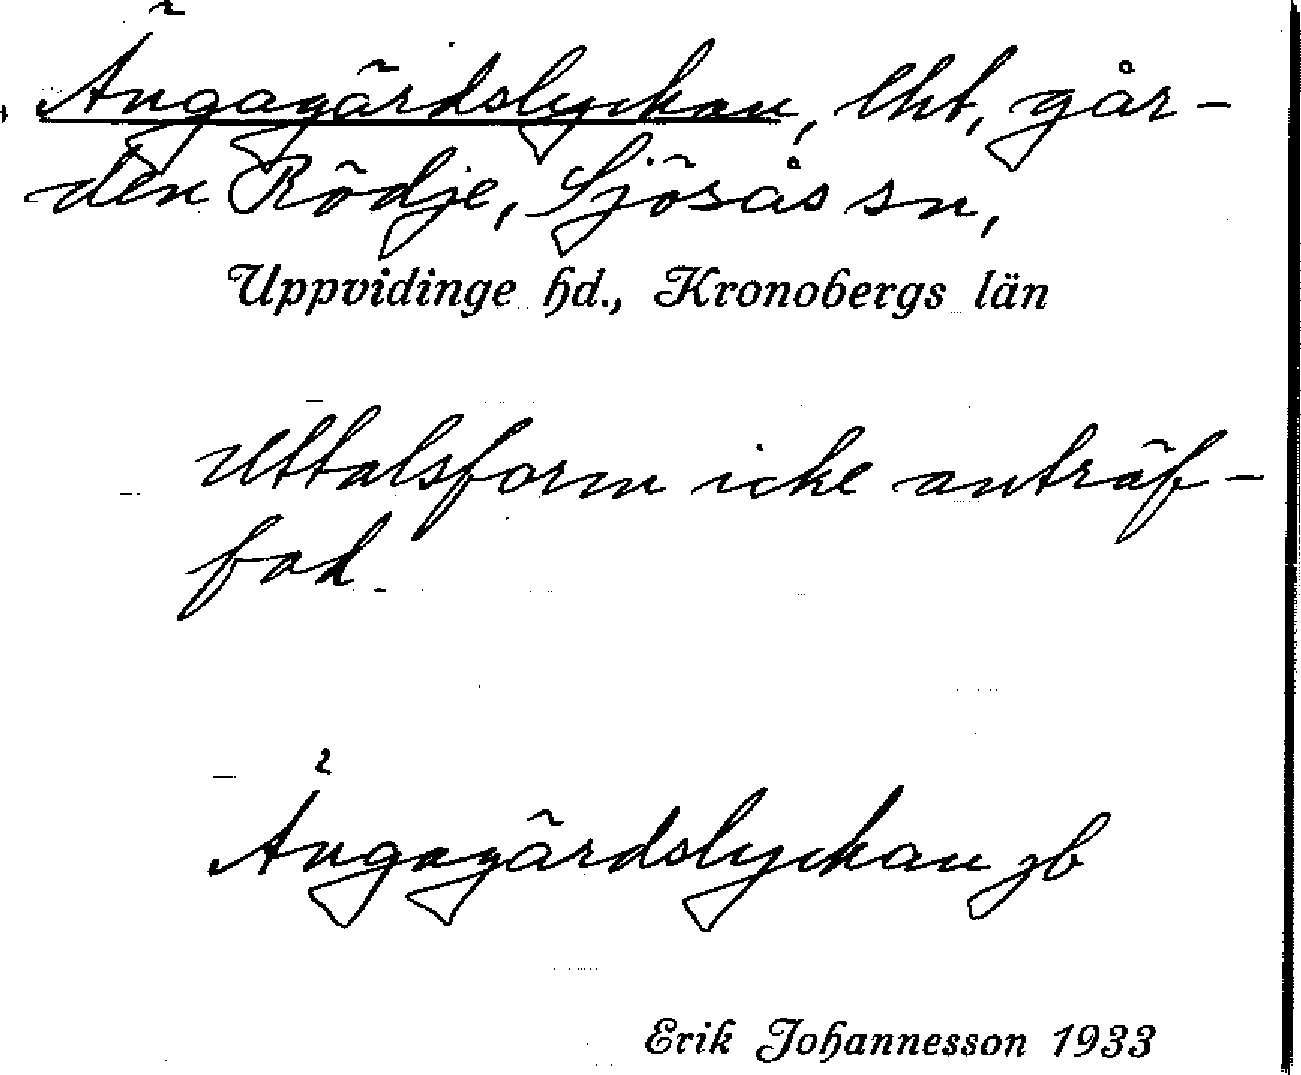 Ängagärdslyckan, lht, går-
den Rödje, Sjösås sn,
Uppvidinge hd., Kronobergs län
Uttalsform icke anträf-
fad.
Ängagärdslyckan jb
Erik Johannesson 1933